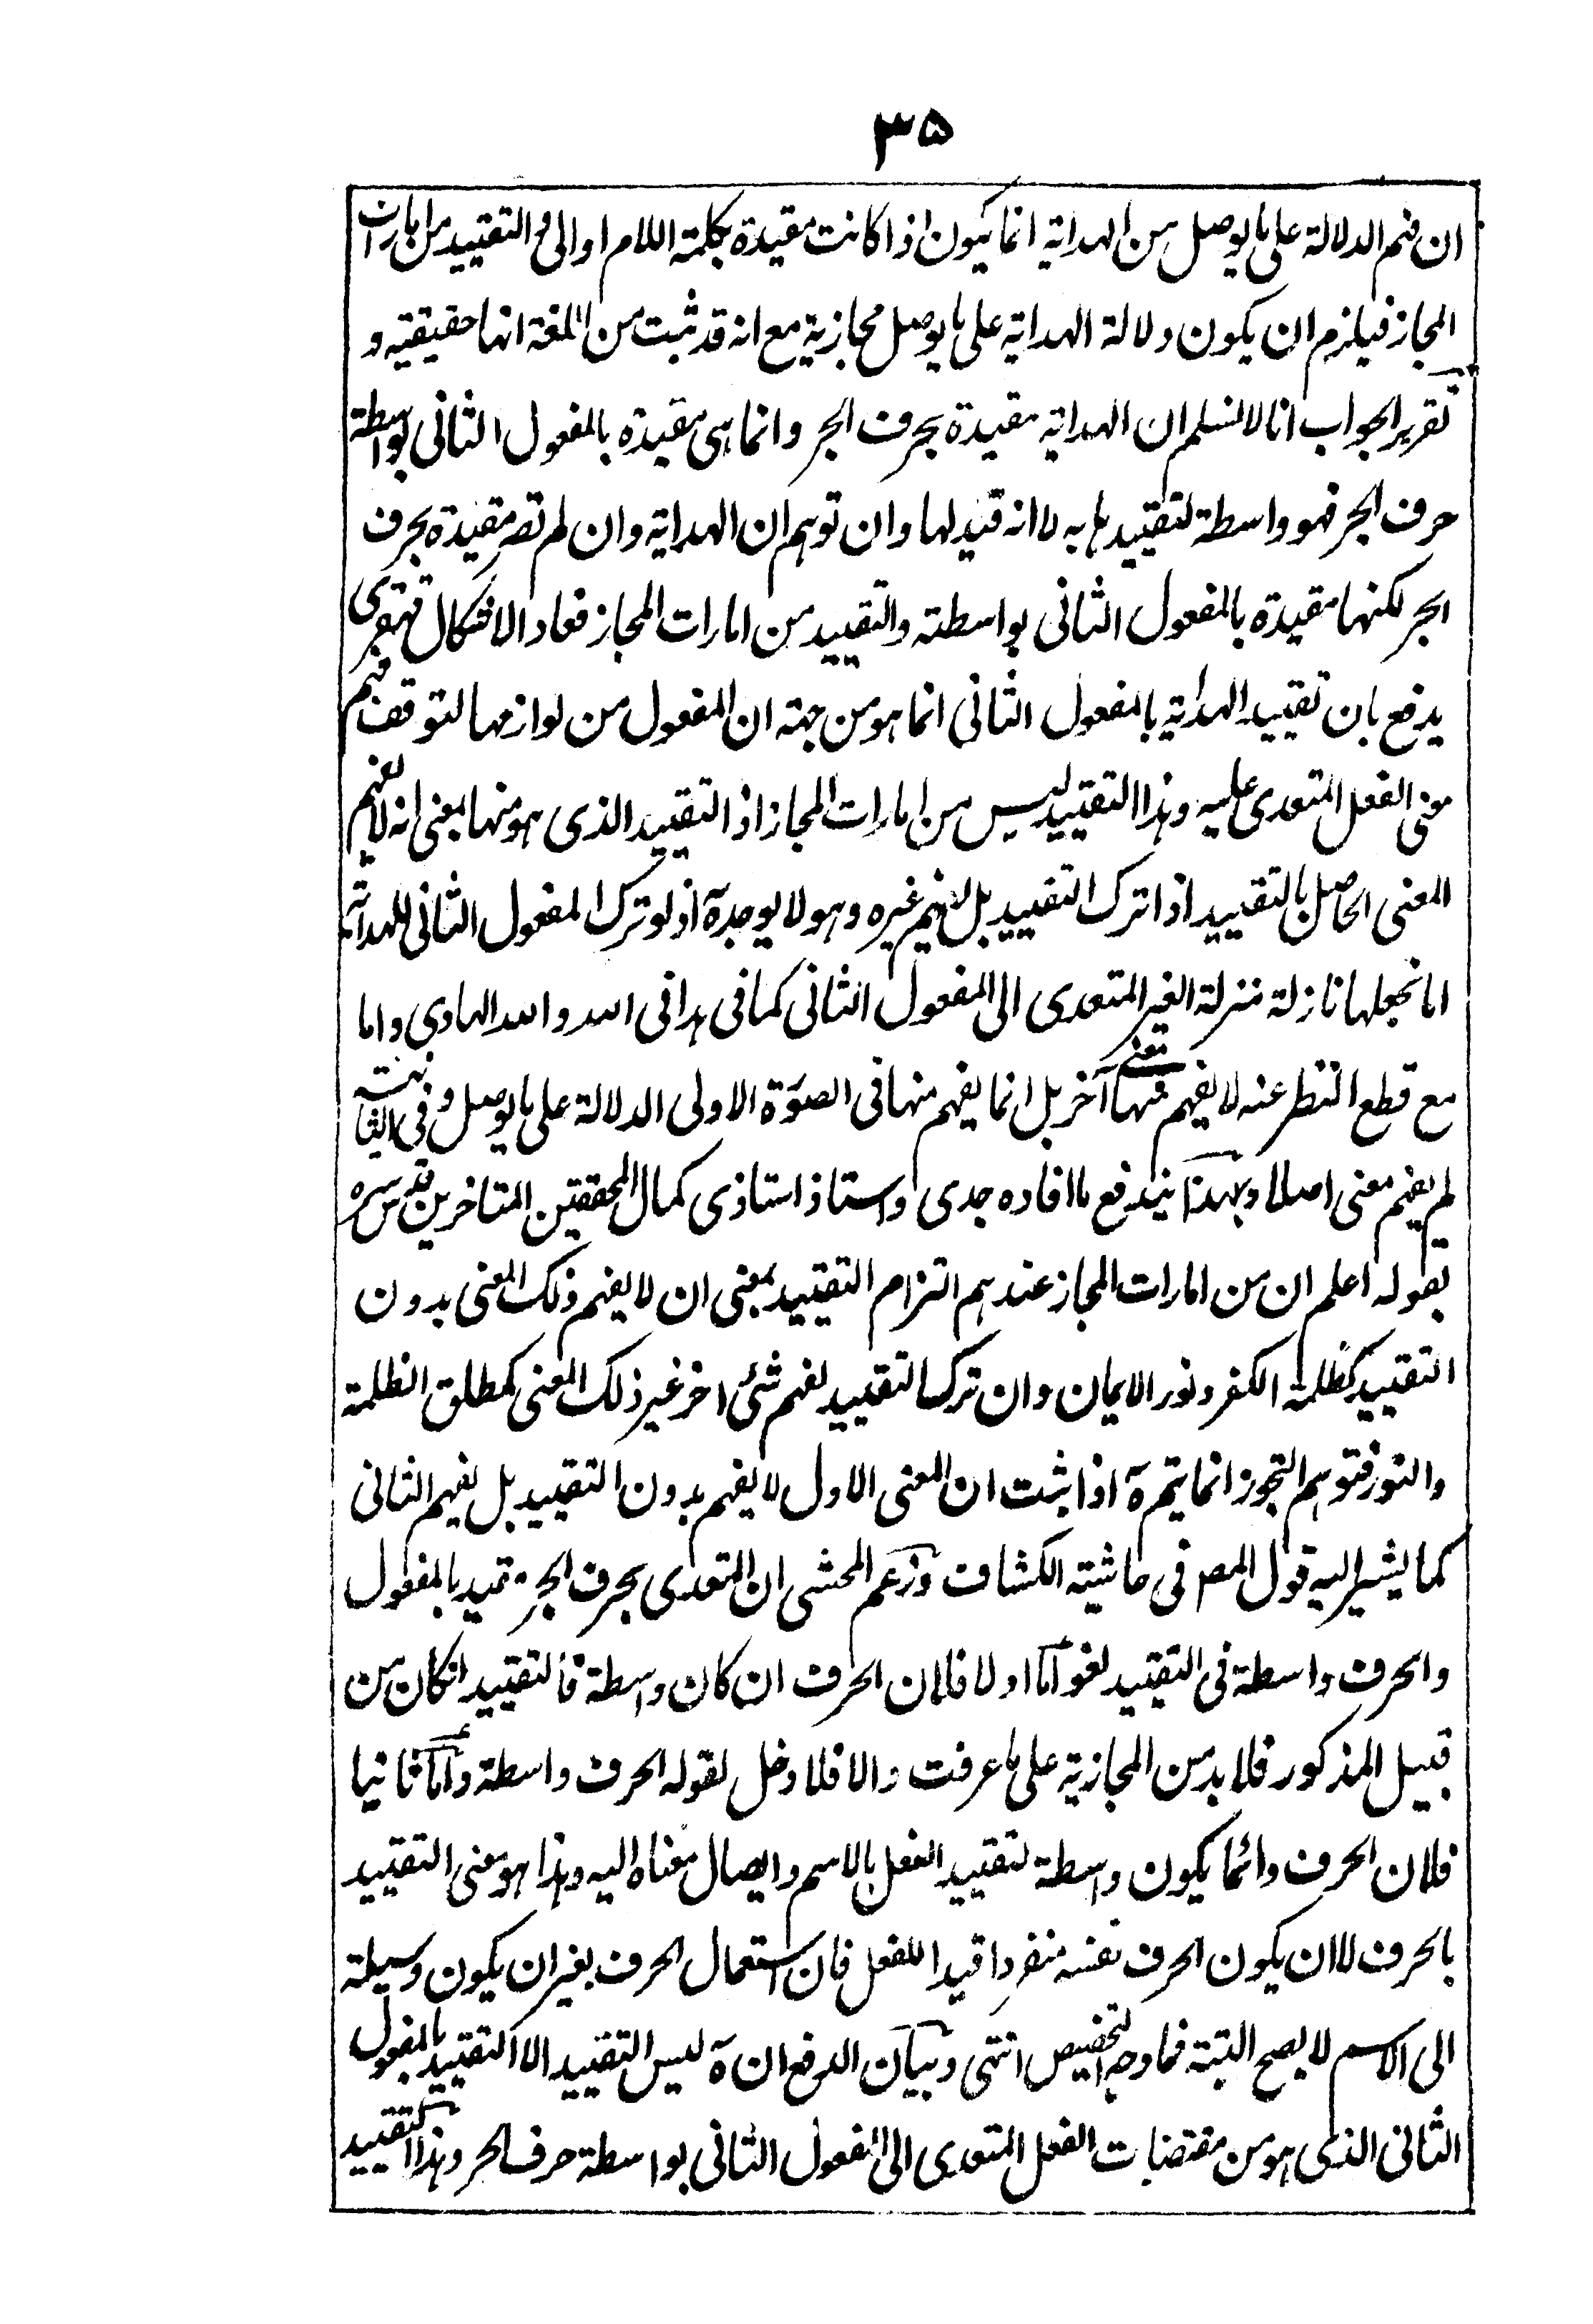 ٣٥
ان فهم الدلالة على ما يوصل من الهداية انما يكون اذا كانت مقيدة بكلمة اللام او الى والتقييد من امارات
المجاز فيلزم ان يكون دلالة الهداية على ما يوصل مجازية مع انه قد ثبت من اللغة انها حقيقية و
تقرير الجواب انا لا نسلم ان الهداية مقيدة بحرف الجر وانما هى مقيدة بالمفعول الثانى بواسطة
حرف الجر فهو واسطة لتقييدها به لا انه قيد لها وان توهم ان الهداية وان لم تصر مقيدة بحرف
الجر لكنها مقيدة بالمفعول الثانى بواسطته والتقييد من امارات المجاز فعاد الاشكال قهقرى
يدفع بان تقييد الهداية بالمفعول الثانى انما هو من جهة ان المفعول من لوازمها لتوقف فهم
معنى الفعل المتعدى عليه وهذا التقييد ليس من امارات المجاز اذ التقييد الذى هو منها بمعنى انه لا يفهم
المعنى الحاصل بالتقييد اذا ترك التقييد بل يفهم غيره وهو لا يوجد هٓ اذ لو ترك المفعول الثانى للهداية
اما نجعلها نازلة منزلة الغير المتعدى الى المفعول الثانى كما فى هدانى الله والله الهادى واما
مع قطع النظر عنه لا يفهم منها معنى آخر بل انما يفهم منها فى الصورة الاولى الدلالة على ما يوصل وفى الثانية
لم يفهم معنى اصلا وبهذا يندفع ما افاده جدى واستاذ استاذى كمال المحققين المتاخرين قدس سره
بقوله اعلم ان من امارات المجاز عندهم التزام التقييد بمعنى ان لا يفهم ذلك المعنى بدون
التقييد كظلمة الكفر ونور الايمان وان ترك التقييد لفهم شئ اخر غير ذلك المعنى كمطلق الظلمة
والنور فتوهم التجوز انما يتم هٓ اذا ثبت ان المعنى الاول لا يفهم بدون التقييد بل يفهم الثانى
كما يشير اليه قول المص فى حاشية الكشاف وزعم المحشى ان المتعدى بحرف الجر قيد بالمفعول
والحرف واسطة فى التقييد لغو اما اولا فلان الحرف ان كان واسطة فالتقييد انكان من
قبيل المذكور فلا بد من المجازية على ما عرفت والا فلا دخل لقوله الحرف واسطة واما ثانيا
فلان الحرف دائما يكون واسطة لتقييد الفعل بالاسم وايصال معناه اليه وهذا هو معنى التقييد
بالحرف لا ان يكون الحرف نفسه منفردا قيدا للفعل فان استعمال الحرف بغير ان يكون وسيلة
الى الاسم لا يصح البتة فما وجه التخصيص انتهى وبيان الدفع ان هٓ ليس التقييد الا التقييد بالمفعول
الثانى الذى هو من مقتضيات الفعل المتعدى الى المفعول الثانى بواسطة حرف الجر وهذا التقييد